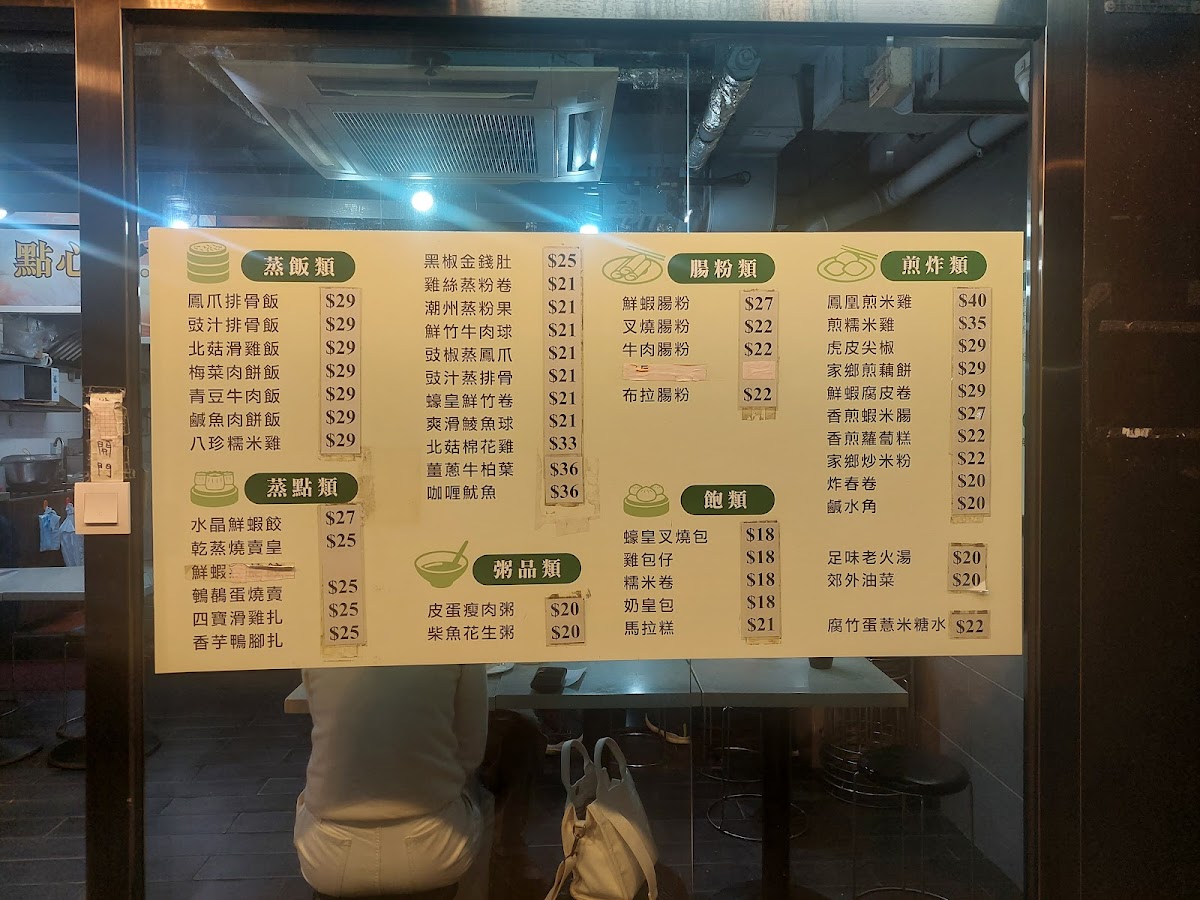 點心
開門
蒸飯類
鳳爪排骨飯 $29
豉汁排骨飯 $29
北菇滑雞飯 $29
梅菜肉餅飯 $29
青豆牛肉飯 $29
鹹魚肉餅飯 $29
八珍糯米雞 $29
蒸點類
水晶鮮蝦餃 $27
乾蒸燒賣皇 $25
鮮蝦
鵪鶉蛋燒賣 $25
四寶滑雞扎 $25
香芋鴨腳扎 $25
黑椒金錢肚 $25
雞絲蒸粉卷 $21
潮州蒸粉果 $21
鮮竹牛肉球 $21
豉椒蒸鳳爪 $21
豉汁蒸排骨 $21
蠔皇鮮竹卷 $21
爽滑鯪魚球 $21
北菇棉花雞 $33
薑蔥牛柏葉 $36
咖喱魷魚 $36
粥品類
皮蛋瘦肉粥 $20
柴魚花生粥 $20
腸粉類
鮮蝦腸粉 $27
叉燒腸粉 $22
牛肉腸粉 $22
布拉腸粉 $22
飽類
蠔皇叉燒包 $18
雞包仔 $18
糯米卷 $18
奶皇包 $18
馬拉糕 $21
煎炸類
鳳凰煎米雞 $40
煎糯米雞 $35
虎皮尖椒 $29
家鄉煎藕餅 $29
鮮蝦腐皮卷 $29
香煎蝦米腸 $27
香煎蘿蔔糕 $22
家鄉炒米粉 $22
炸春卷 $20
鹹水角 $20
足味老火湯 $20
郊外油菜 $20
腐竹蛋薏米糖水 $22